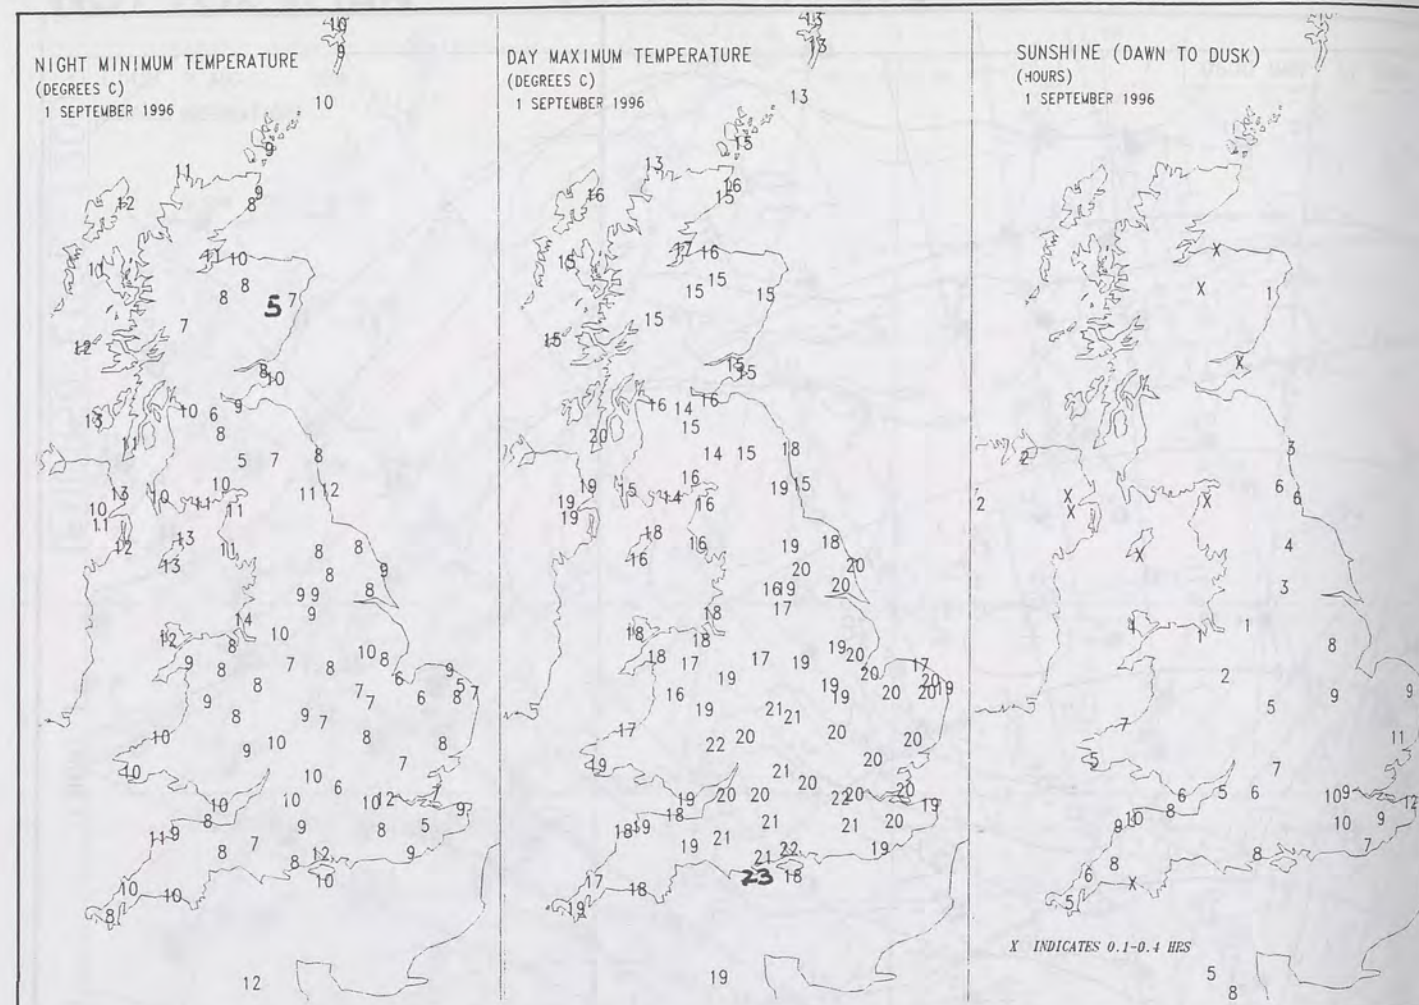 NIGHT MINIMUM TEMPERATURE
(DEGREES C)
1 SEPTEMBER 1996
10
9
10
9
11
9
8
12
11 10
10
8
8
5 7
7
12
8
10
10 6 9
13
8
11
8
5 7
10
13 10 11 11 12
10 11
11
13
12 11 8 8
13
8 9
9 9 8
9
14
12 10
8 10
9 8 7 8 8 9
8 6 5 7
9 7 7 6 8
8 9 7
10 8
9 10 8
10 7
10 6 7
10 10 10 12 9
11 9 8 9 8 5
8 7 12 9
8
10 10 10
8
12
DAY MAXIMUM TEMPERATURE
(DEGREES C)
1 SEPTEMBER 1996
13
13
13
15
13
16
16 15
17 16
15
15
15 15
15
15
15
15
16 14 16
20 15
14 15 18
16
19 15 14 19 15
19 16
18
16 16 19 18
20 20
16 19 20
17
18
18 18
18 17 17 19 19 20
19 20 17
16 19 19 20 20 19
19 21 21
17 22 20 20 20
19 21 20
20 20 20 22 20 20
19 19
18 18 19 21 21 21 20
19 21 22 19
23 18
17 18
19
19
SUNSHINE (DAWN TO DUSK)
(HOURS)
1 SEPTEMBER 1996
X
X 1
X
2 3
6
2 X X X 6
X 4
3
4 1 1
8
2
9 9
5
7
11
5 7
6 5 6 10 9 12
9 10 8 10 9
7
8 8
6 X
5
X INDICATES 0.1-0.4 HRS
5
8